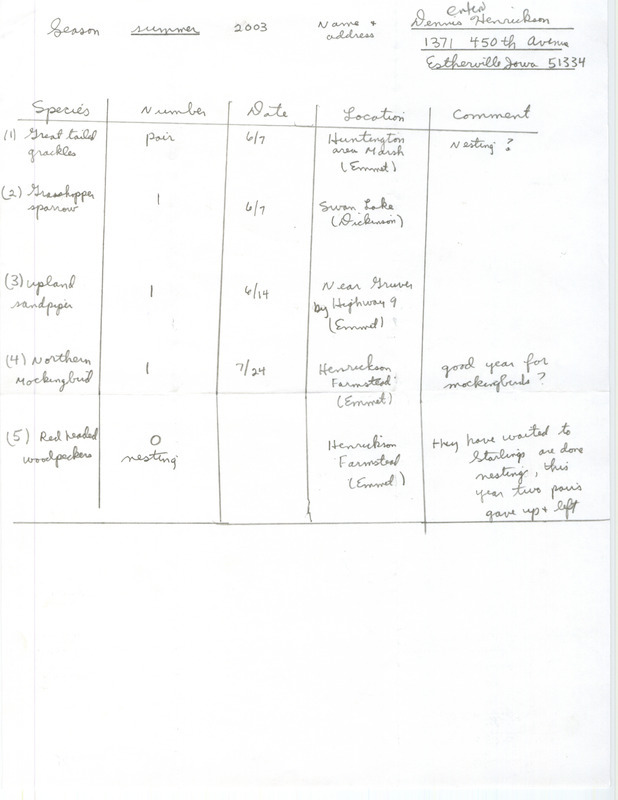 enter
Season summer 2003 Name + address Dennis Henrickson
1371 450th Avenue
Estherville Iowa 51334
Species Number Date Location Comment
(1) Great tailed grackles pair 6/7 Huntington area Marsh (Emmet) Nesting?
(2) Grasshopper sparrow 1 6/7 Swan Lake (Dickinson)
(3) Upland sandpiper 1 6/14 Near Gruver by Highway 9 (Emmet)
(4) Northern Mockingbird 1 7/24 Henrickson Farmstead (Emmet) good year for mockingbirds?
(5) Red headed woodpeckers 0 nesting Henrickson Farmstead (Emmet) they have waited to Starlings are done nesting, this year two pairs gave up + left